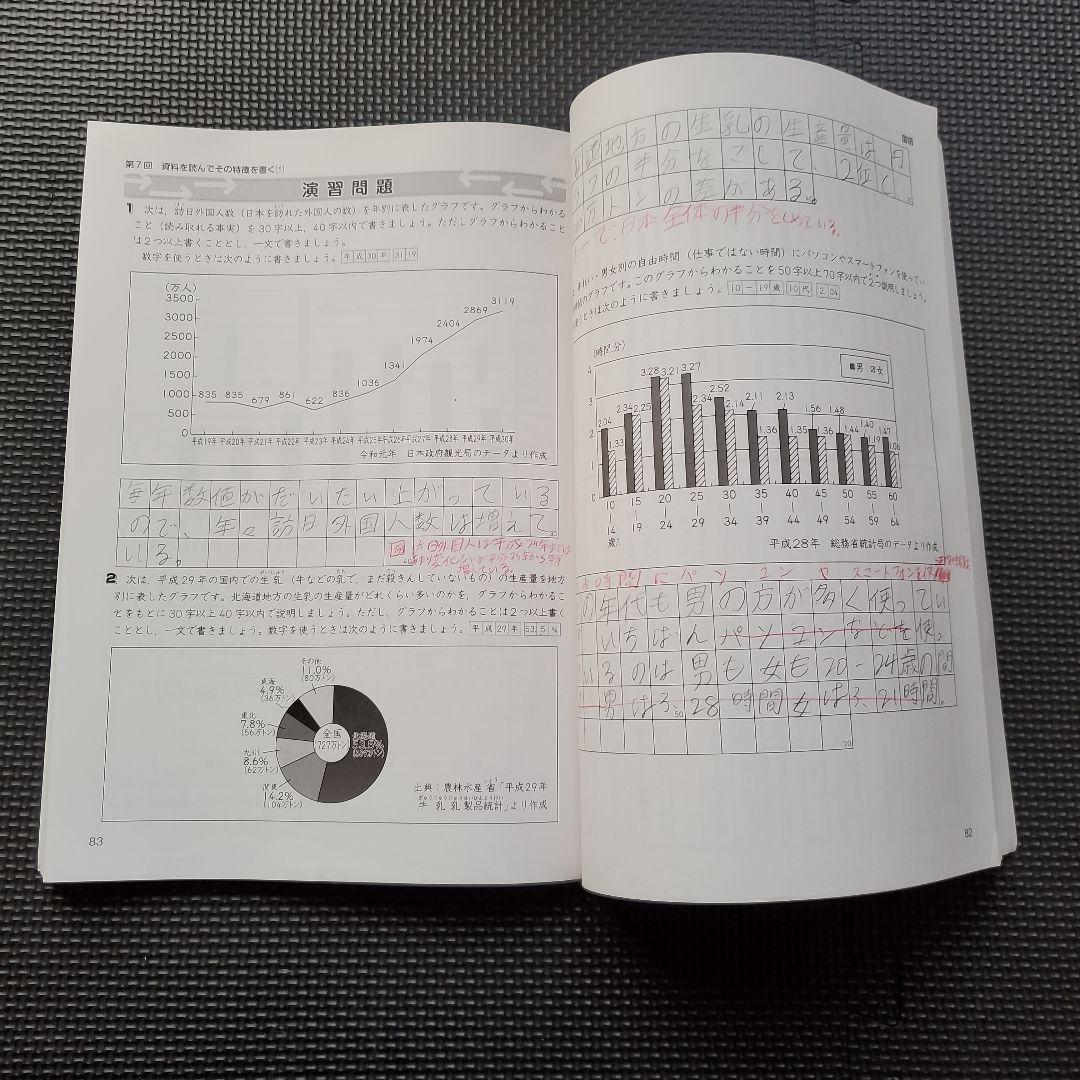 第7回 資料を読んでその特徴を書く(1)
演習問題
1 次は、訪日外国人数（日本を訪れた外国人の数）を年別に表したグラフです。グラフからわかる
こと（読み取れる事実）を30字以上、40字以内で書きましょう。ただしグラフからわかること
は2つ以上書くこととし、一文で書きましょう。
数字を使うときは次のように書きましょう。平成30年 3119
(万人)
3500
3000
2500
2000
1500
1000
500
0
835 835 679 861 622 836 1036 1341 1974 2404 2869 3119
平成19年 平成20年 平成21年 平成22年 平成23年 平成24年 平成25年 平成26年 平成27年 平成28年 平成29年 平成30年
令和元年 日本政府観光局のデータより作成
毎年数値がだいたい上がっている
ので、年々訪日外国人数は増えて
30
いる。
40
2 次は、平成29年の国内での生乳（牛などの乳で、まだ殺きんしていないもの）の生産量を地方
別に表したグラフです。北海道地方の生乳の生産量がどれくらい多いのかを、グラフからわかるこ
とをもとに30字以上40字以内で説明しましょう。ただし、グラフからわかることは2つ以上書く
こととし、一文で書きましょう。数字を使うときは次のように書きましょう。平成29年 53.5%
その他
11.0%
(80万トン)
東海
4.9%
(36万トン)
東北
7.8%
(56万トン)
九州
8.6%
(62万トン)
関東
14.2%
(104万トン)
全国
(727万トン)
北海道
53.5%
出典：農林水産省「平成29年
牛乳乳製品統計」より作成
83
国語
道地方の生乳の生産量は日
の半分をこして、2位と
万トンの差がある。
で、日本全体の半分をしめている。
男女別の自由時間（仕事ではない時間）にパソコンやスマートフォンを使ってい
のグラフです。このグラフからわかることを50字以上70字以内で2つ説明しましょう。
ときは次のように書きましょう。10－19歳 10代 2.04
(時間.分)
男 女
4
3
2
1
0
2.04 1.33 2.34 2.25 3.28 3.21 3.27 2.52 2.34 2.14 2.11 1.36 2.13 1.35 1.56 1.36 1.48 1.44 1.40 1.19 1.47 1.06
10 15 20 25 30 35 40 45 50 55 60
14 19 24 29 34 39 44 49 54 59 64
歳
平成28年 総務省統計局のデータより作成
時間にパソコンやスマートフォンを
の年代も男の方が多く使ってい
いちばんパソコンなどを使
いるのは男も女も20－24歳の間
男は3、28時間女は3、21時間。
50
70
82